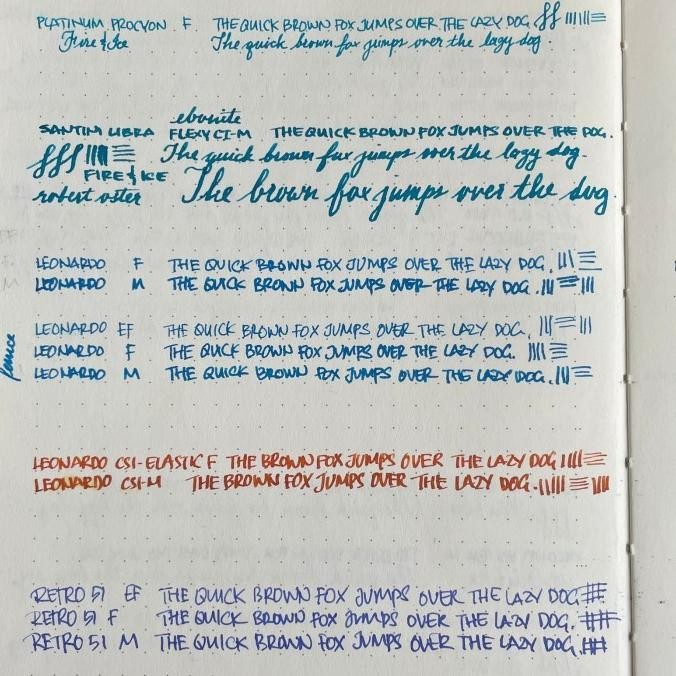 PLATINUM PROCYON F THE QUICK BROWN FOX JUMPS OVER THE LAZY DOG.
Fire & Ice The quick brown fox jumps over the lazy dog.
ebonite
SANTINI LIBRA FLEXY CI-M THE QUICK BROWN FOX JUMPS OVER THE DOG.
The quick brown fox jumps over the lazy dog.
FIRE & ICE
robert oster The brown fox jumps over the dog
LEONARDO F THE QUICK BROWN FOX JUMPS OVER THE LAZY DOG.
LEONARDO M THE QUICK BROWN FOX JUMPS OVER THE LAZY DOG.
LEONARDO EF THE QUICK BROWN FOX JUMPS OVER THE LAZY DOG.
LEONARDO F THE QUICK BROWN FOX JUMPS OVER THE LAZY DOG.
LEONARDO M THE QUICK BROWN FOX JUMPS OVER THE LAZY DOG.
LEONARDO CSI-ELASTIC F THE BROWN FOX JUMPS OVER THE LAZY DOG
LEONARDO CSI-M THE BROWN FOX JUMPS OVER THE LAZY DOG.
RETRO 51 EF THE QUICK BROWN FOX JUMPS OVER THE LAZY DOG.
RETRO 51 F THE QUICK BROWN FOX JUMPS OVER THE LAZY DOG.
RETRO 51 M THE QUICK BROWN FOX JUMPS OVER THE LAZY DOG.